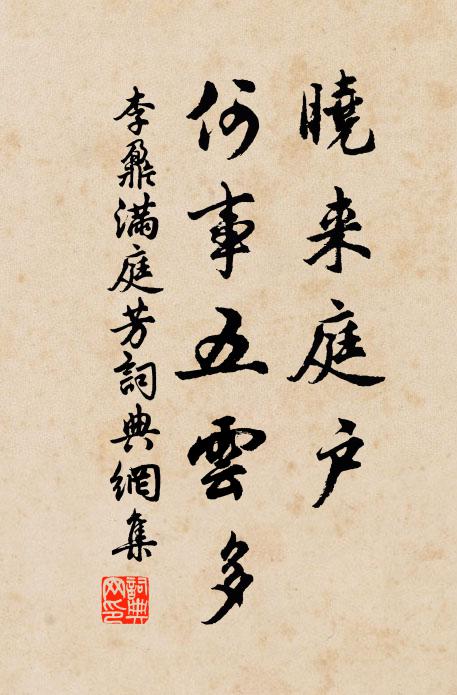 曉来庭户
何事五雲多
李鼐滿庭芳詞典網集
詞典
网印